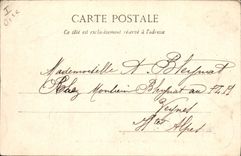 CARTE POSTALE
Ce côté est exclusivement réservé à l'adresse
Mademoiselle A. Bleynat
Chez Monsieur Bleynat au
Veynes
Htes Alpes